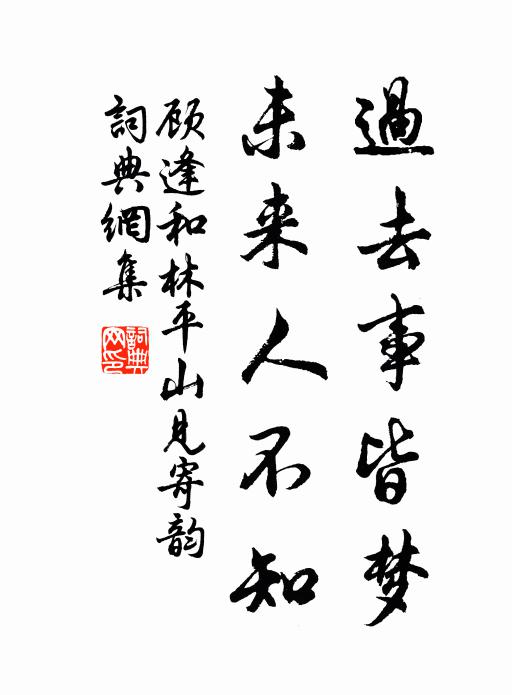 過去事皆梦
未来人不知
顾逢和林平山见寄韵
詞典網集
詞典网印